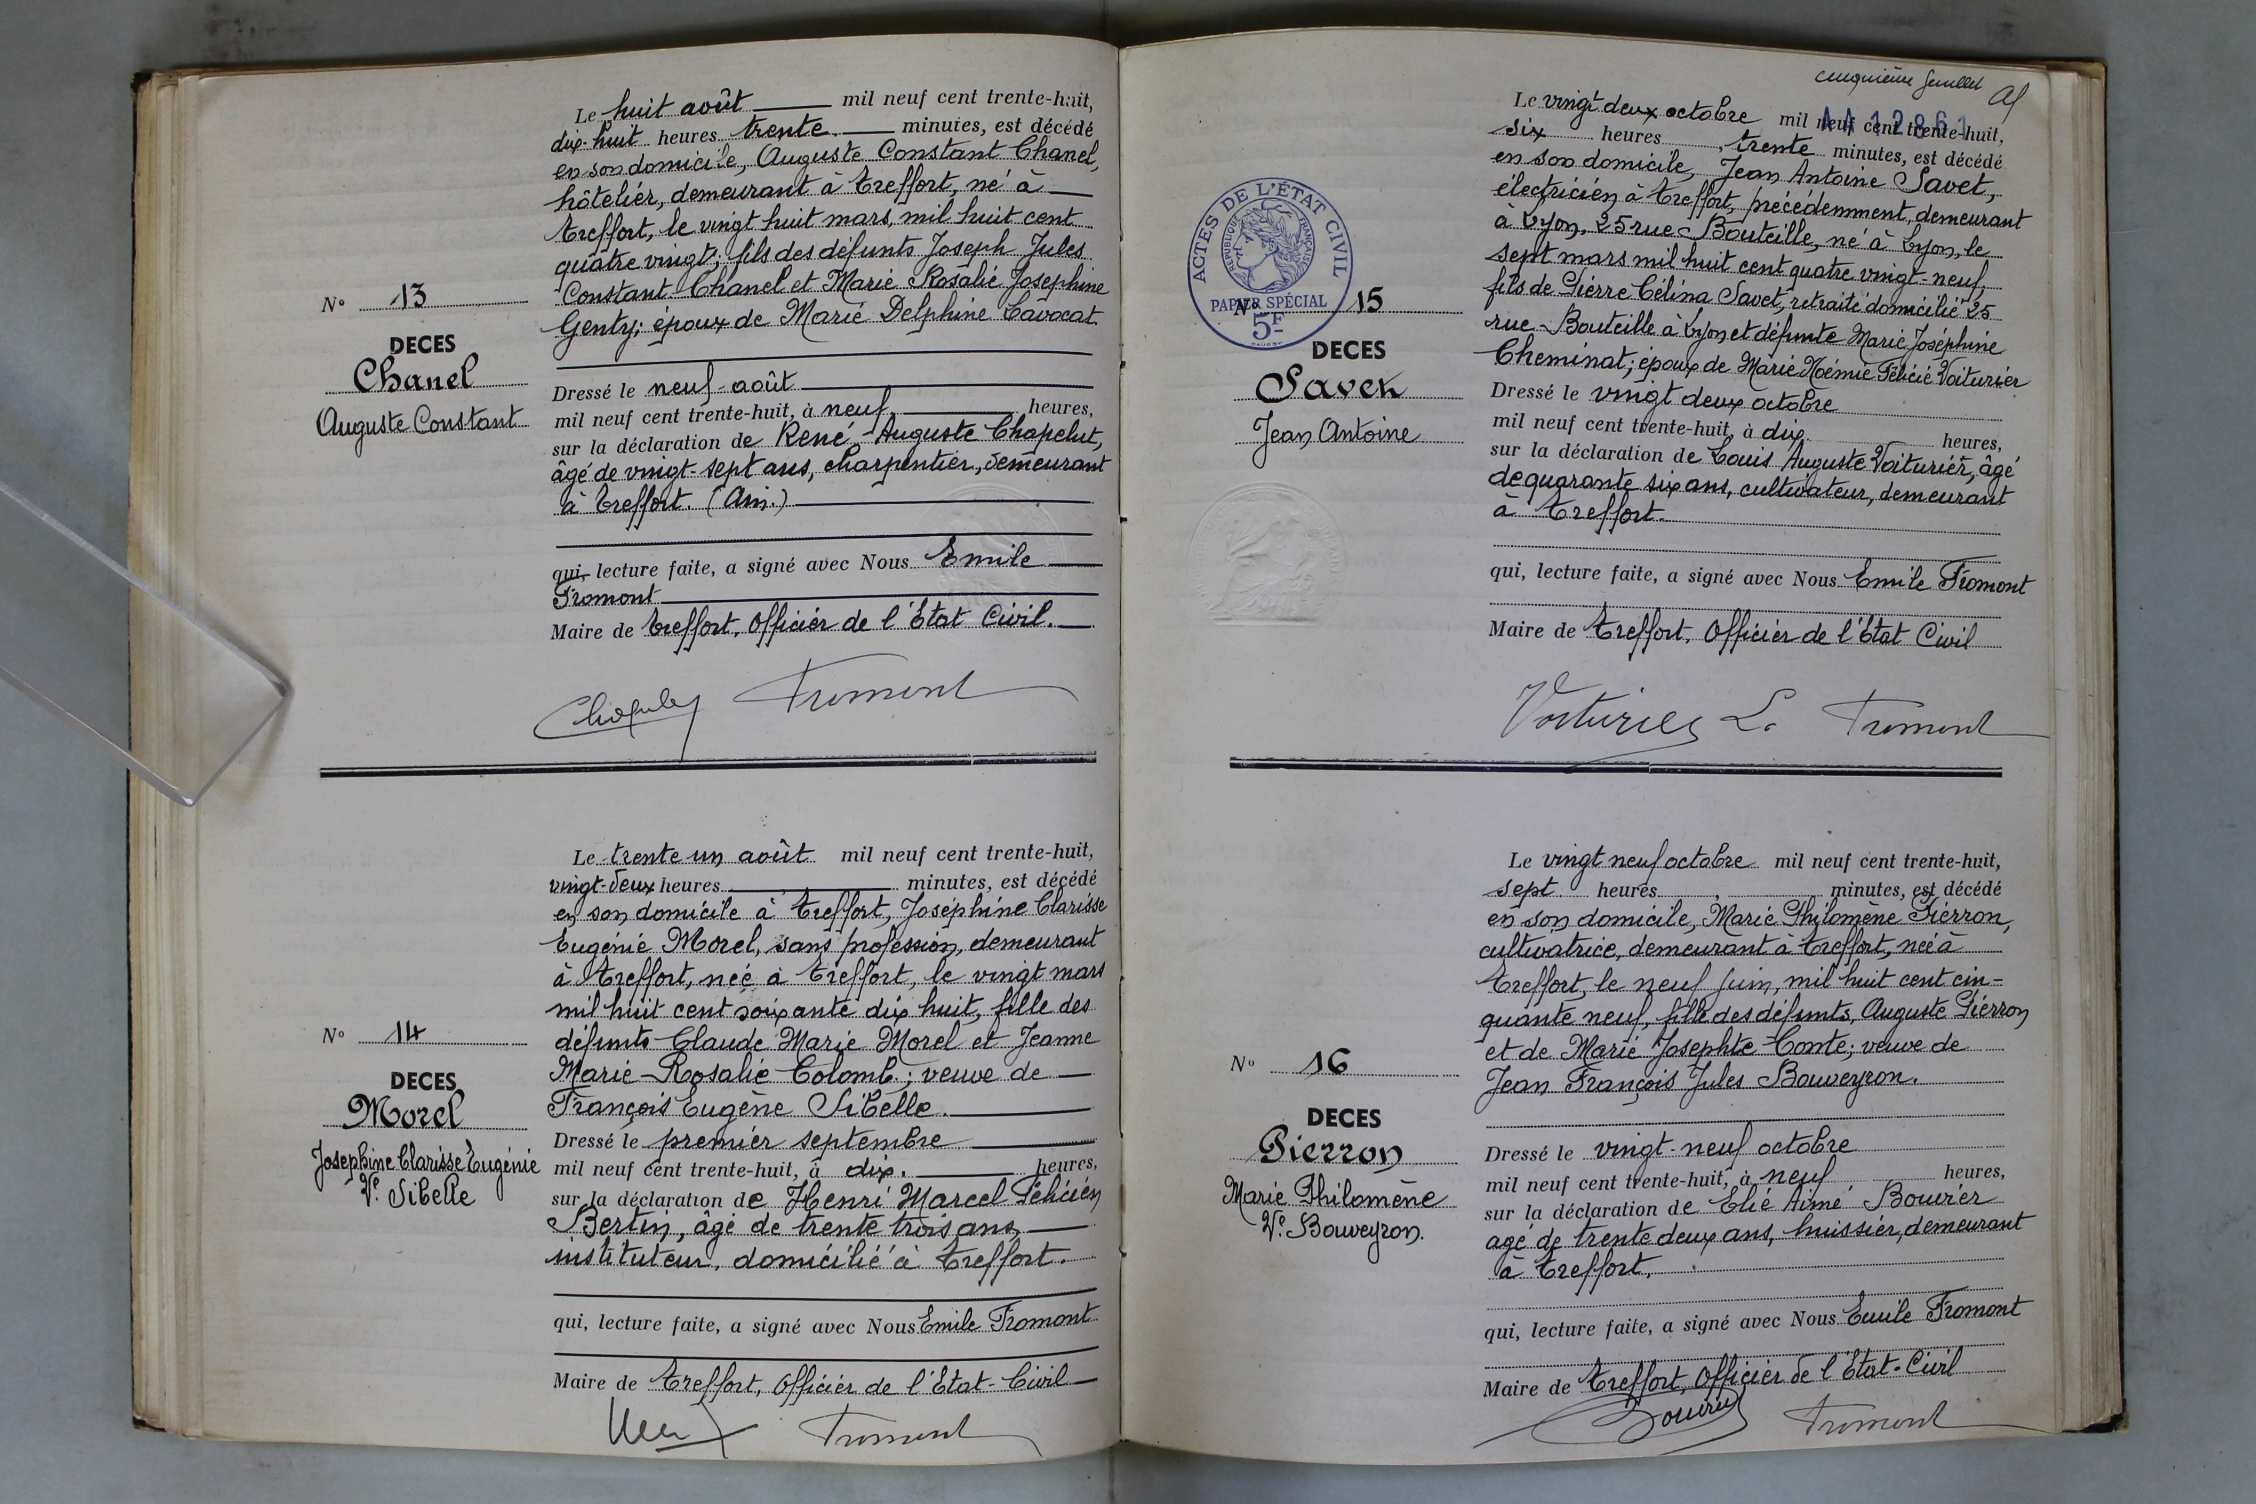 Le huit août mil neuf cent trente-huit,
dix-huit heures trente minutes, est décédé
en son domicile, Auguste Constant Chanel,
hôtelier, demeurant à Treffort, né à
Treffort, le vingt huit mars, mil huit cent
quatre vingt; fils des défunts Joseph Jules
Constant Chanel et Marie Rosalie Josephine
Genty; époux de Marie Delphine Lavocat
N° 13
DECES
Chanel
Auguste Constant
Dressé le neuf août
mil neuf cent trente-huit, à neuf heures,
sur la déclaration de René Auguste Chapelut,
âgé de vingt-sept ans, charpentier, demeurant
à Treffort. (Ain.)
qui, lecture faite, a signé avec Nous Emile
Fromont
Maire de Treffort, Officier de l'Etat Civil.
Fromont
Le trente un août mil neuf cent trente-huit,
vingt-deux heures minutes, est décédé
en son domicile à Treffort, Joséphine Clarisse
Eugénie Morel, sans profession, demeurant
à Treffort, née à Treffort, le vingt mars
mil huit cent soixante dix huit, fille des
défunts Claude Marie Morel et Jeanne
Marie-Rosalie Colomb; veuve de
François Eugène Sibelle.
N° 14
DECES
Morel
Josephine Clarisse Eugénie
Ve. Sibelle
Dressé le premier septembre
mil neuf cent trente-huit, à dix. heures,
sur la déclaration de Henri Marcel Félicien
Bertin, âgé de trente trois ans,
instituteur, domicilié à Treffort.
qui, lecture faite, a signé avec Nous Emile Fromont
Maire de Treffort, Officier de l'Etat-Civil
Fromont
cinquième feuillet
AA 12861
Le vingt deux octobre mil neuf cent trente-huit,
six heures, trente minutes, est décédé
en son domicile, Jean Antoine Savet,
électricien à Treffort, précédemment, demeurant
à Lyon, 25 rue Bouteille, né à Lyon, le
sept mars mil huit cent quatre vingt-neuf,
fils de Pierre Célina Savet, retraité domicilié 25
rue Bouteille à Lyon et défunte Marie Joséphine
Cheminat; époux de Marie Noémie Félicie Voiturier
ACTES DE L'ÉTAT CIVIL
RÉPUBLIQUE FRANÇAISE
PAPIER SPÉCIAL
5F
N° 15
DECES
Savet
Jean Antoine
Dressé le vingt deux octobre
mil neuf cent trente-huit, à dix. heures,
sur la déclaration de Louis Auguste Voiturier, âgé
de quarante six ans, cultivateur, demeurant
à Treffort.
qui, lecture faite, a signé avec Nous Emile Fromont
Maire de Treffort, Officier de l'Etat Civil
Voiturier L. Fromont
Le vingt neuf octobre mil neuf cent trente-huit,
sept heures, minutes, est décédé
en son domicile, Marie Philomène Pierron,
cultivatrice, demeurant à Treffort, née à
Treffort, le neuf juin, mil huit cent cin-
quante neuf, fille des défunts, Auguste Pierron
et de Marie Josephte Conte; veuve de
Jean François Jules Bouveyron.
N° 16
DECES
Pierron
Marie Philomène
Ve. Bouveyron.
Dressé le vingt-neuf octobre
mil neuf cent trente-huit, à neuf heures,
sur la déclaration de Elie Aimé Bouvier
agé de trente deux ans, huissier, demeurant
à Treffort.
qui, lecture faite, a signé avec Nous Emile Fromont
Maire de Treffort, Officier de l'Etat-Civil
Bouvier Fromont